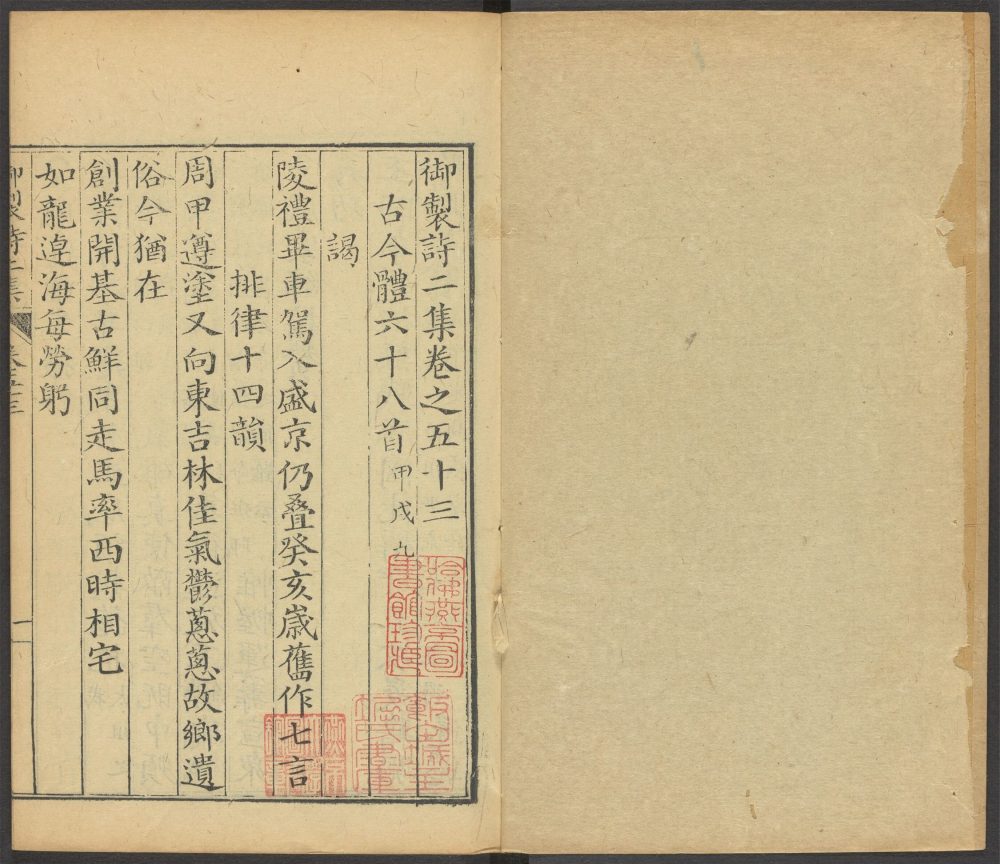 御製詩二集卷之五十三
古今體六十八首甲戌九
謁
陵禮畢車駕入盛京仍疊癸亥歲舊作七言
排律十四韻
周甲遵塗又向東吉林佳氣鬱蔥蔥故鄉遺
俗今猶在
創業開基古鮮同走馬率西時相宅
如龍遑海每勞躬
御製詩二集 卷五十三 一
哈佛燕京圖
書館珍藏